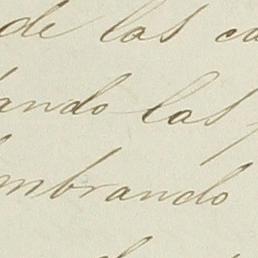 de las ca
ando las
mbrando